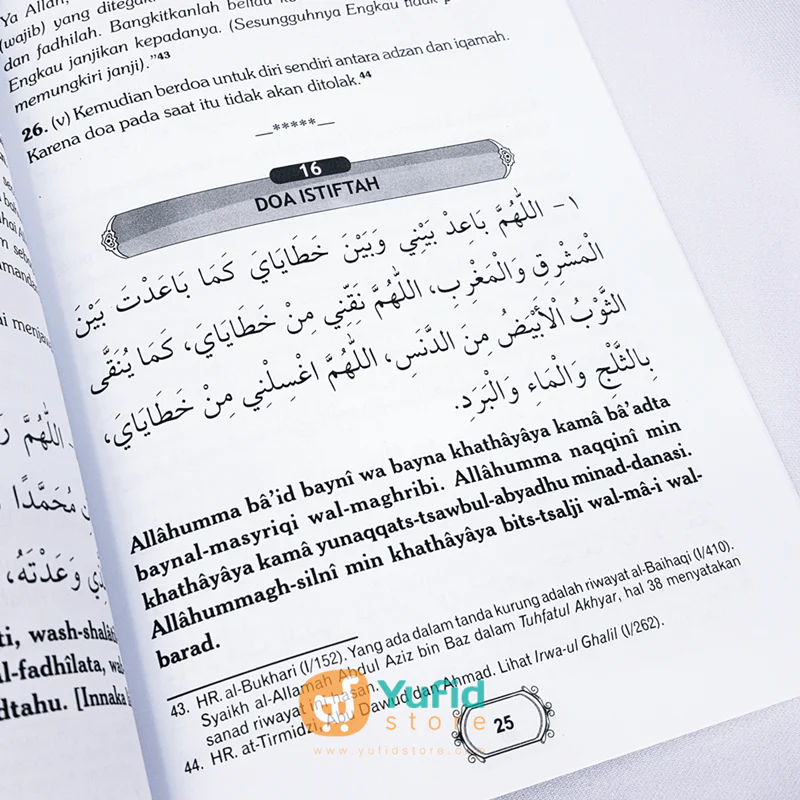 Ya Allah,
(wajib) yang ditegak
dan fadhilah. Bangkitkanlah beliau
Engkau janjikan kepadanya. (Sesungguhnya Engkau tidak
memungkiri janji)."43
26. (v) Kemudian berdoa untuk diri sendiri antara adzan dan iqamah.
Karena doa pada saat itu tidak akan ditolak.44
—*****—
16
DOA ISTIFTAH
١- اللَّهُمَّ بَاعِدْ بَيْنِي وَبَيْنَ خَطَايَايَ كَمَا بَاعَدْتَ بَيْنَ
الْمَشْرِقِ وَالْمَغْرِبِ، اللَّهُمَّ نَقِّنِي مِنْ خَطَايَايَ، كَمَا يُنَقَّى
الثَّوْبُ الْأَبْيَضُ مِنَ الدَّنَسِ، اللَّهُمَّ اغْسِلْنِي مِنْ خَطَايَايَ،
بِالثَّلْجِ وَالْمَاءِ وَالْبَرَدِ.
Allâhumma bâ'id baynî wa bayna khathâyâya kamâ bâ'adta
baynal-masyriqi wal-maghribi. Allâhumma naqqinî min
khathâyâya kamâ yunaqqats-tsawbul-abyadhu minad-danasi.
Allâhummagh-silnî min khathâyâya bits-tsalji wal-mâ-i wal-
barad.
43. HR. al-Bukhari (I/152). Yang ada dalam tanda kurung adalah riwayat al-Baihaqi (I/410).
Syaikh al-Allamah Abdul Aziz bin Baz dalam Tuhfatul Akhyar, hal 38 menyatakan
sanad riwayat ini hasan.
44. HR. at-Tirmidzi, Abu Dawud dan Ahmad. Lihat Irwa-ul Ghalil (I/262).
25
Yufid
store
www.yufidstore.com
اللَّهُمَّ
مُحَمَّدًا
وَعَدْتَهُ،
ti, wash-shalâ
l-fadhîlata, wa
dtahu. [Innaka